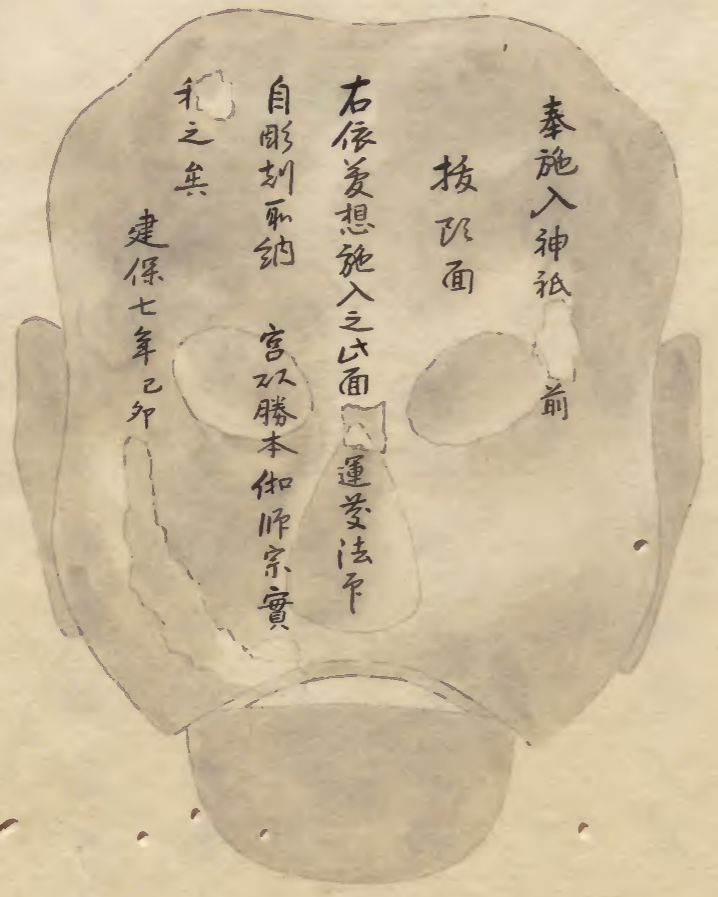 奉施入神祇前
抜頭面
右依夢想施入之此面運慶法印
自彫刻納 宮以勝本師宗實
之矣
建保七年己卯